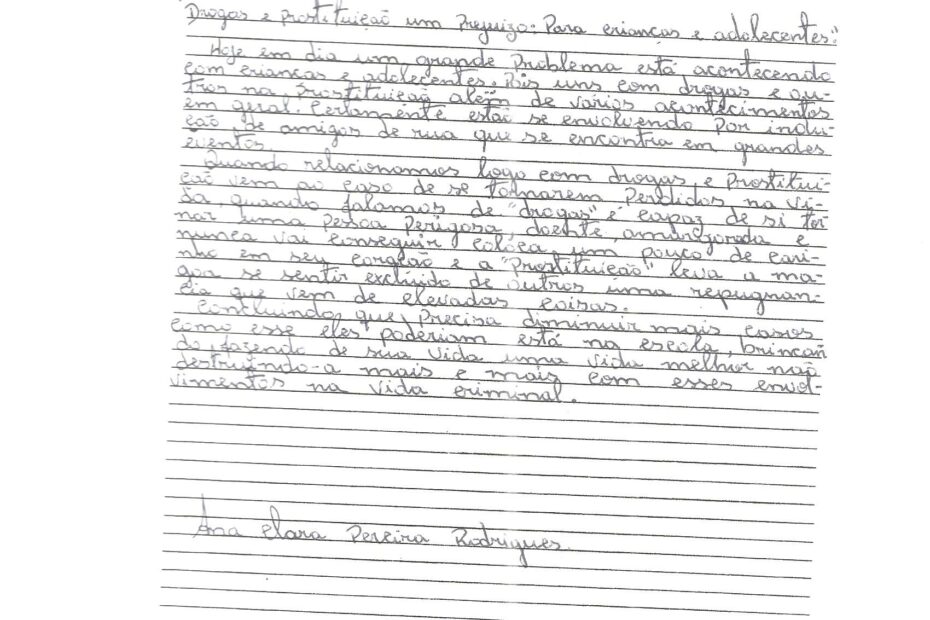 Drogas e prostituição um Prejuizo: Para crianças e adolecentes."
Hoje em dia um grande Problema está acontecendo
com crianças e adolecentes. Pois uns com drogas e ou-
tros na Prostituição além de varios acontecimentos
em geral. Certamente estão se envolvendo Por indu-
ção de amigos de rua que se encontra em grandes
eventos.
Quando relacionamos logo com drogas e Prostitui-
ção vem ao caso de se tolnarem Perdidos na vi-
da, quando falamos de "drogas" é capaz de si tor
nar uma pessoa Perigosa, doente, amargorada e
nunca vai conseguir coloca um pouco de cari-
nho em seu coração e a "Prostituição" leva a ma-
goa se sentir excluido de outros uma repugnan-
cia que vem de elevadas coisas.
Concluindo que, Precisa diminuir mais casos
como esse eles poderiam está na escola, brincan
do, fazendo de sua vida uma vida melhor não
destruindo-a mais e mais com esses envol-
vimentos na vida criminal.
Ana Clara Pereira Rodrigues.